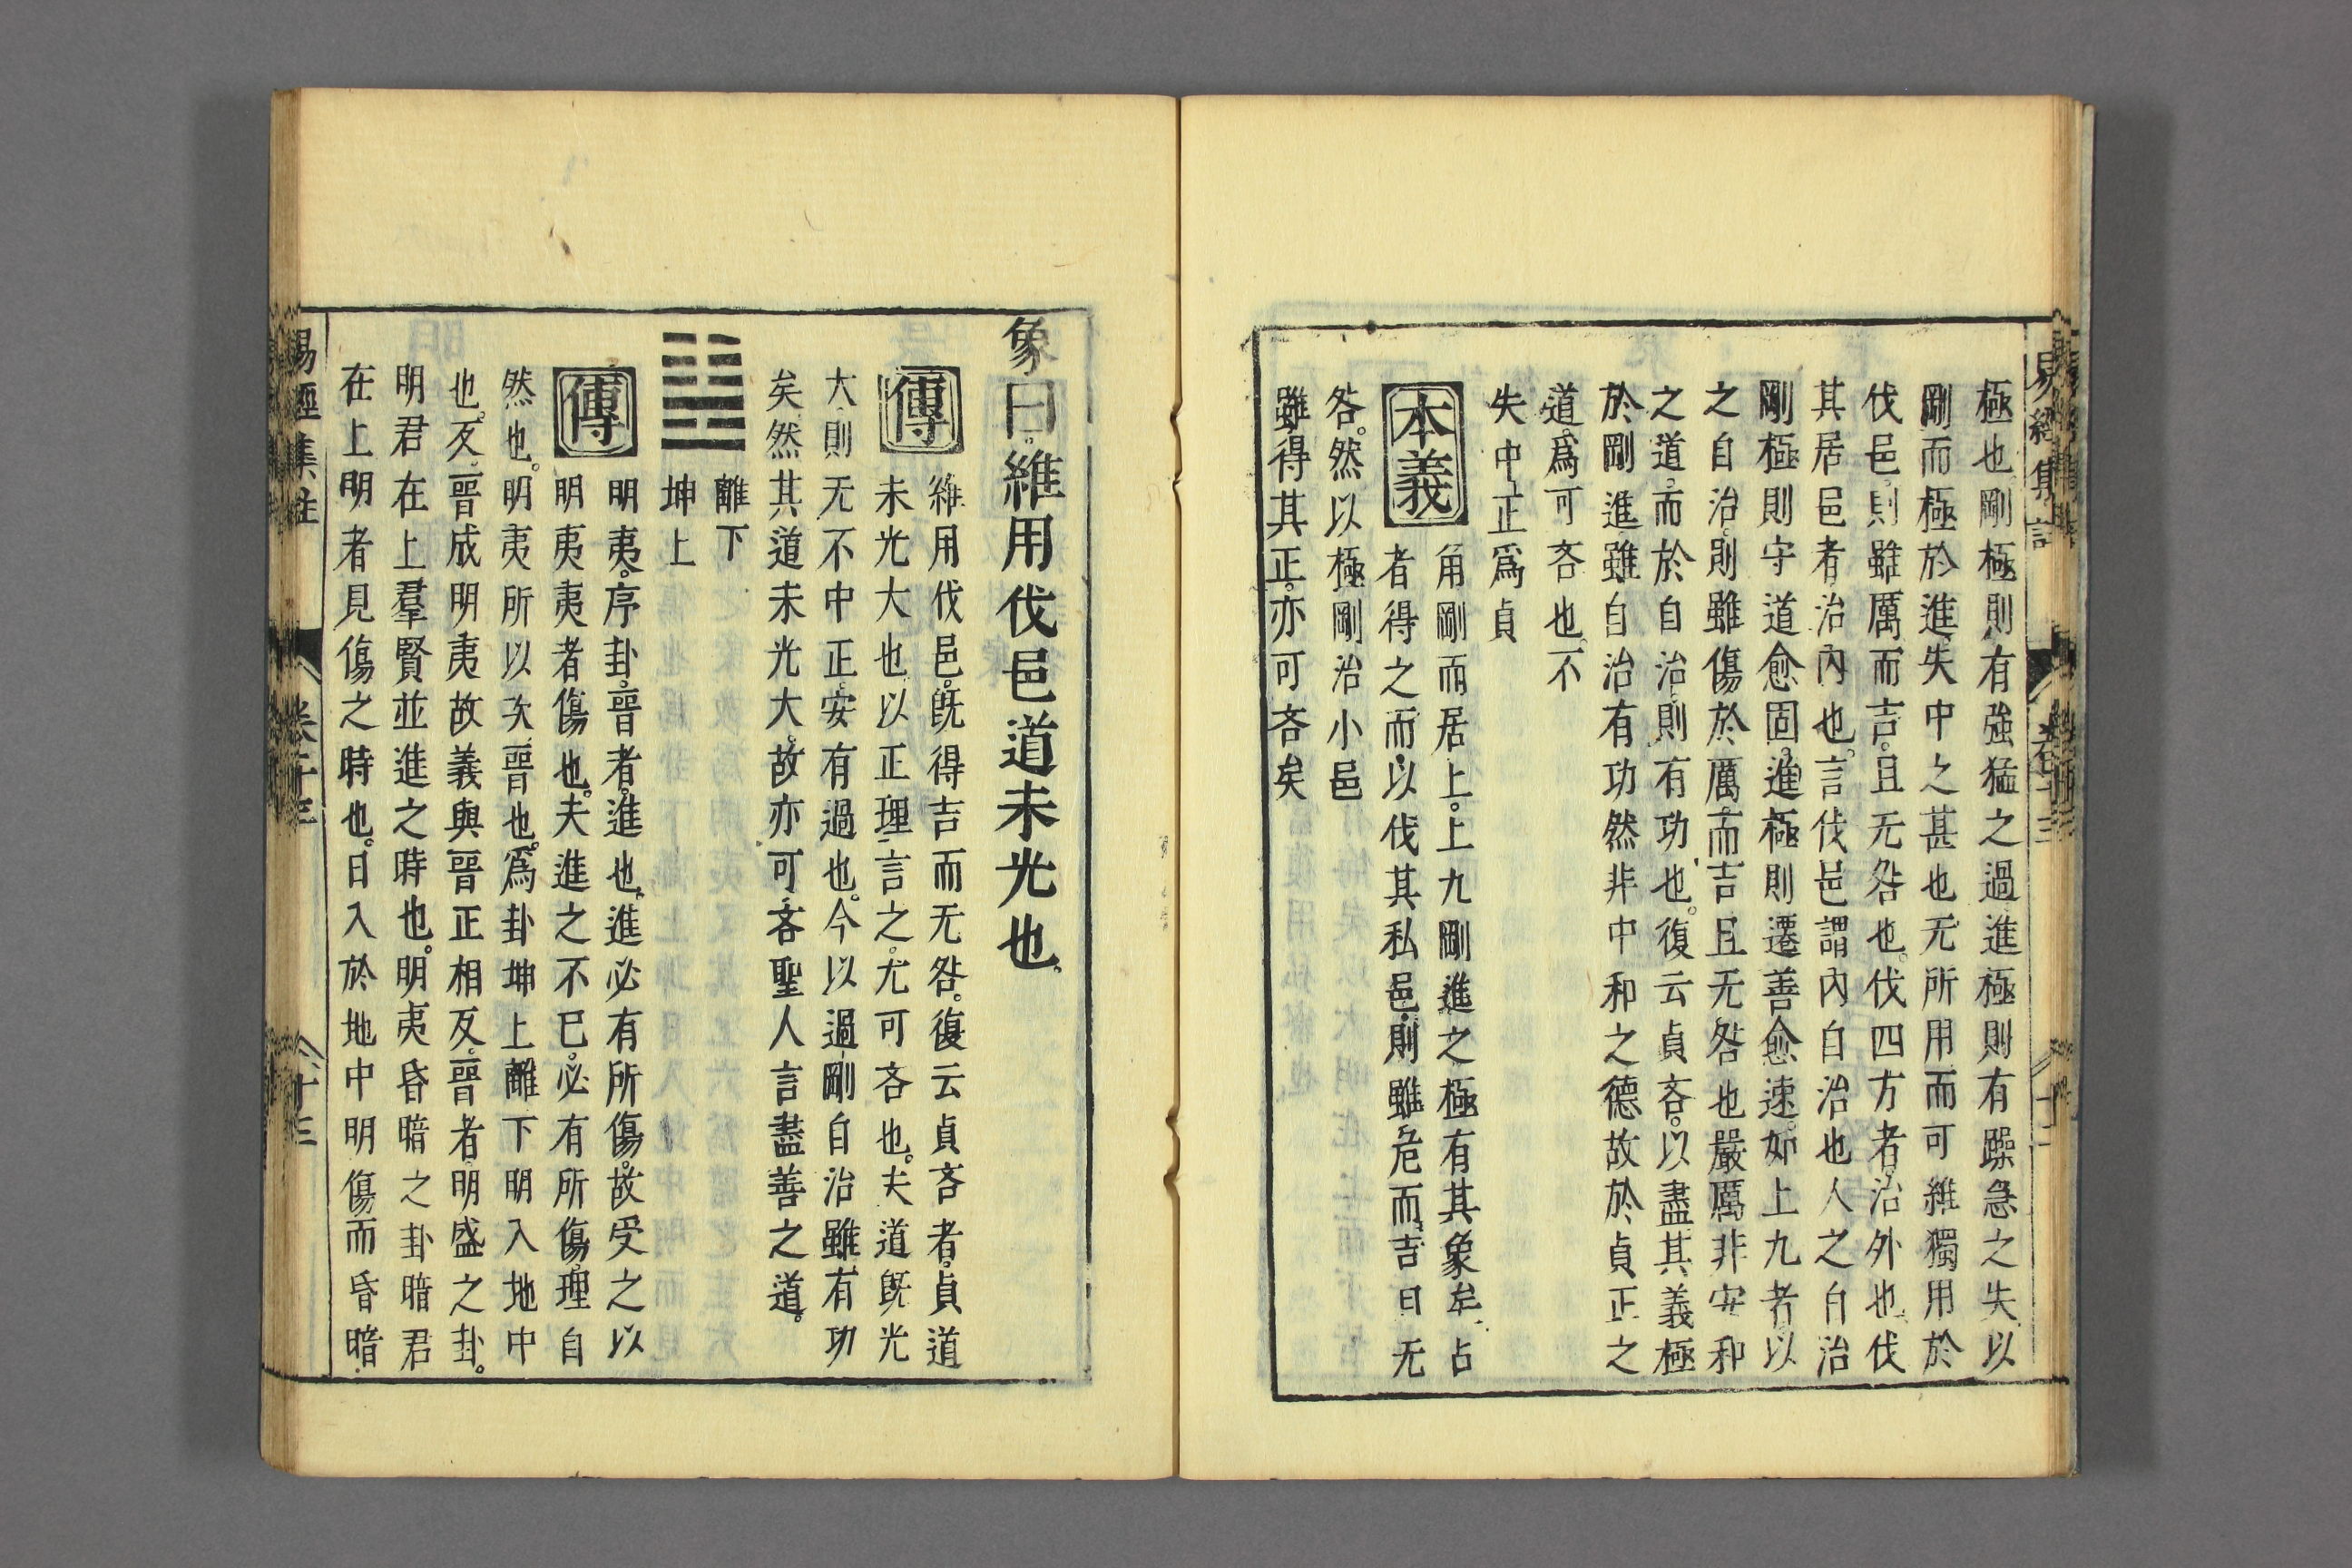 易經集註 卷十三
極也剛極則有強猛之過進極則有躁急之失以
剛而極於進失中之甚也无所用而可維獨用於
伐邑則雖厲而吉且无咎也伐四方者治外也伐
其居邑者治內也言伐邑謂內自治也人之自治
剛極則守道愈固進極則遷善愈速如上九者以
之自治則雖傷於厲而吉且无咎也嚴厲非安和
之道而於自治則有功也復云貞吝以盡其義極
於剛進雖自治有功然非中和之德故於貞正之
道爲可吝也不
失中正爲貞
本義 角剛而居上上九剛進之極有其象矣占
者得之而以伐其私邑則雖危而吉曰无
咎然以極剛治小邑
雖得其正亦可吝矣
象曰維用伐邑道未光也
傳 維用伐邑旣得吉而无咎復云貞吝者貞道
未光大也以正理言之尤可吝也夫道旣光
大則无不中正安有過也今以過剛自治雖有功
矣然其道未光大故亦可吝聖人言盡善之道
離下
坤上
傳 明夷序卦晉者進也進必有所傷故受之以
明夷夷者傷也夫進之不已必有所傷理自
然也明夷所以次晉也爲卦坤上離下明入地中
也反晉成明夷故義與晉正相反晉者明盛之卦
明君在上羣賢並進之時也明夷昏暗之卦暗君
在上明者見傷之時也日入於地中明傷而昏暗
易經集註 卷十三 八十三